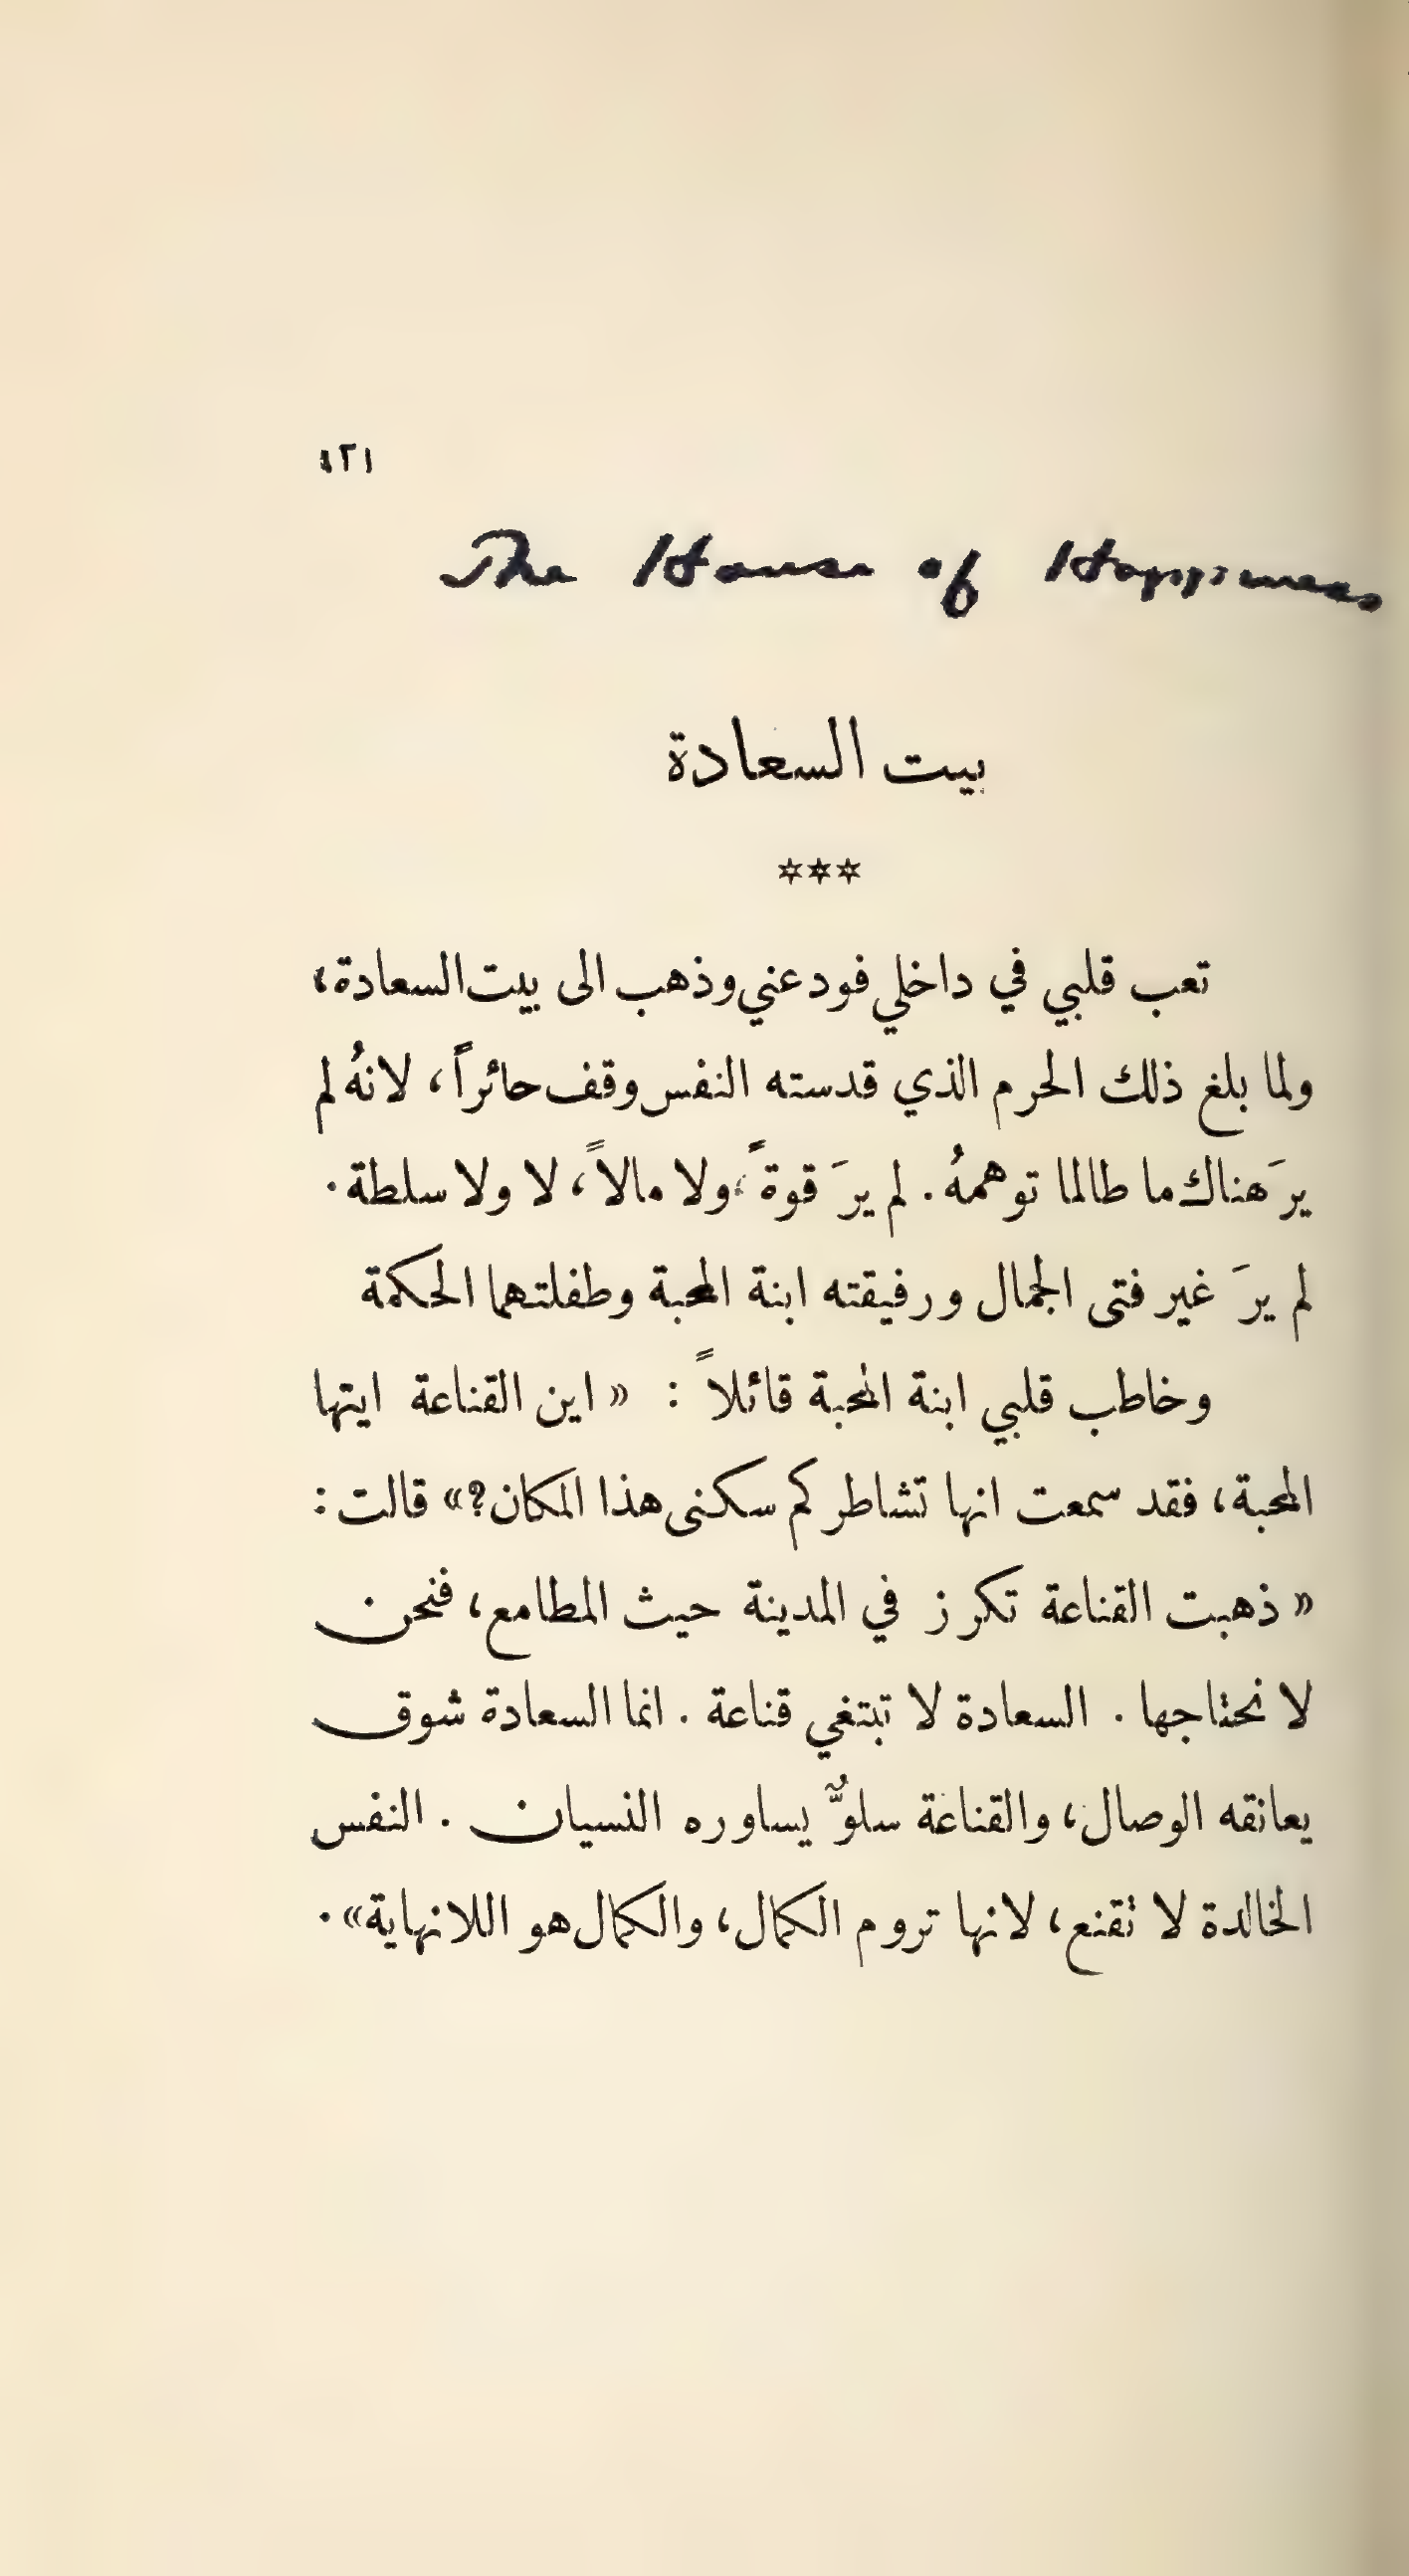 ١٢١
The House of Happiness
بيت السعادة
***
تعب قلبي في داخلي فودعني وذهب الى بيت السعادة،
ولما بلغ ذلك الحرم الذي قدسته النفس وقف حائراً، لانهُ لم
يرَ هناك ما طالما توهمهُ. لم يرَ قوةً، ولا مالاً، لا ولا سلطة.
لم يرَ غير فتى الجمال ورفيقته ابنة المحبة وطفلتهما الحكمة
وخاطب قلبي ابنة المحبة قائلاً : « اين القناعة ايتها
المحبة، فقد سمعت انها تشاطركم سكنى هذا المكان؟» قالت :
« ذهبت القناعة تكرز في المدينة حيث المطامع، فنحن
لا نحتاجها . السعادة لا تبتغي قناعة . انما السعادة شوق
يعانقه الوصال، والقناعة سلوٌّ يساوره النسيان . النفس
الخالدة لا تقنع، لانها تروم الكمال، والكمال هو اللانهاية».